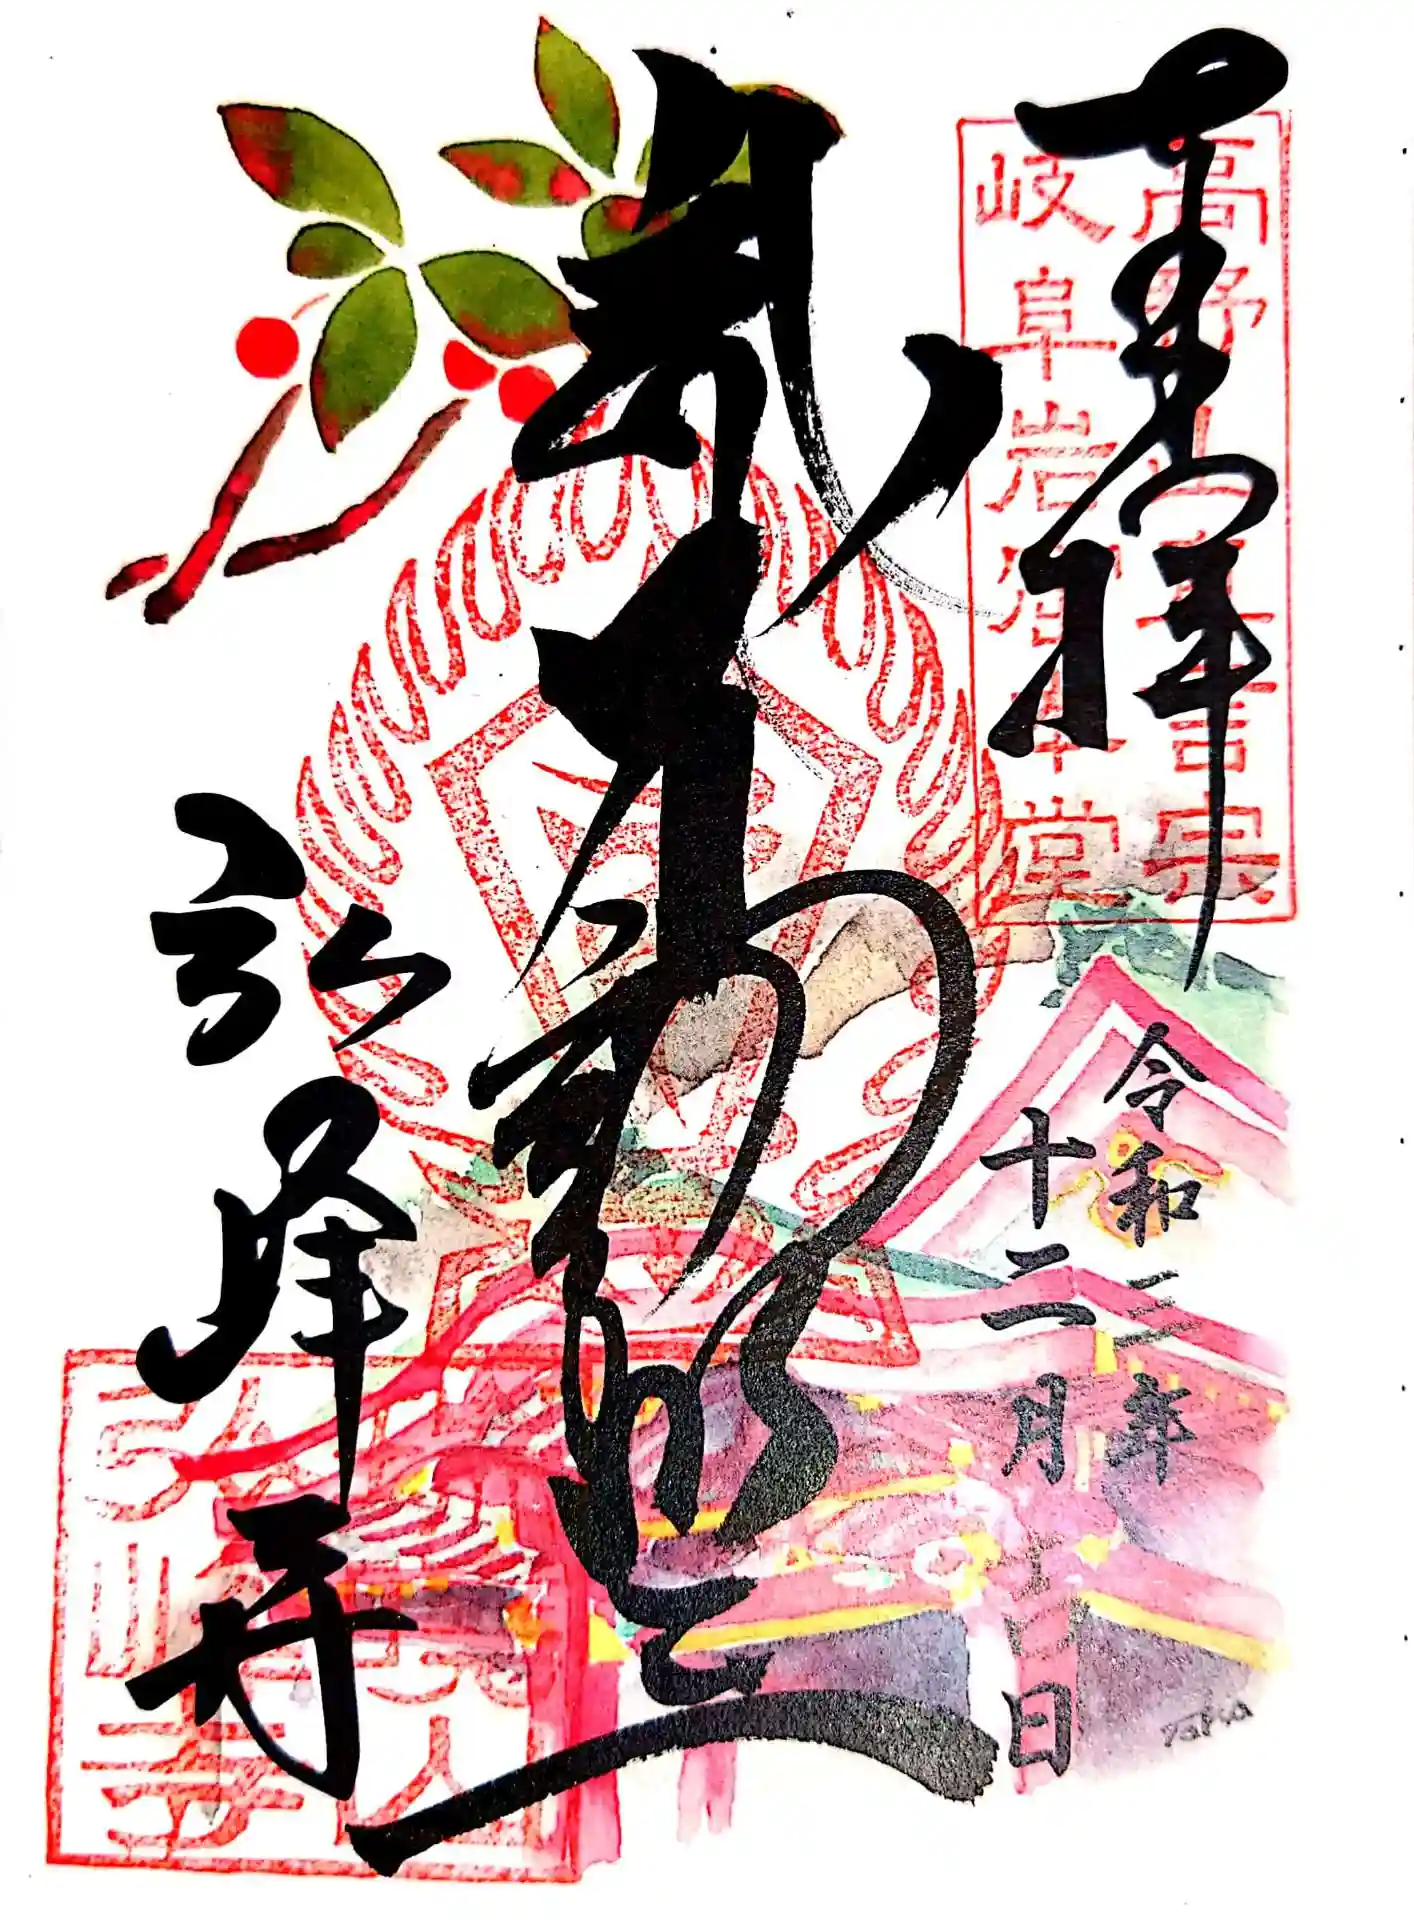 奉拝
高野山真言宗
岐阜岩窟本堂
令和三年
十二月吉日
武不動明王
弘峰寺